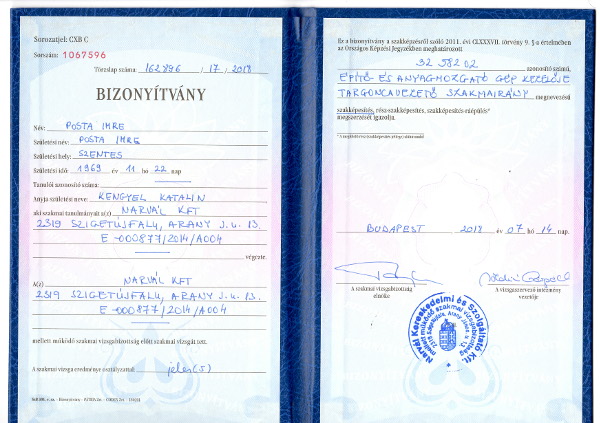 Sorozatjel: CXB C
Sorszám: 1067596
Törzslap száma: 162896 / 17 / 2018
BIZONYÍTVÁNY
Név: POSTA IMRE
Születési név: POSTA IMRE
Születési hely: SZENTES
Születési idő: 1969 év 11 hó 22 nap
Tanulói azonosító száma:
Anyja születési neve: KENGYEL KATALIN
aki szakmai tanulmányait a(z) NARVÁL KFT
2319 SZIGETÚJFALU, ARANY J. u. 13.
E-000877/2014/A004
végezte.
A(z) NARVÁL KFT
2319 SZIGETÚJFALU, ARANY J. u. 13.
E-000877/2014/A004
mellett működő szakmai vizsgabizottság előtt szakmai vizsgát tett.
A szakmai vizsga eredménye osztályzattal: jeles (5)
Ez a bizonyítvány a szakképzésről szóló 2011. évi CLXXXVII. törvény 9. §-a értelmében
az Országos Képzési Jegyzékben meghatározott
32 582 02 azonosító számú,
ÉPÍTŐ- ÉS ANYAGMOZGATÓ GÉP KEZELŐJE
TARGONCAVEZETŐ SZAKMAIRÁNY megnevezésű
szakképesítés, részszakképesítés, szakképesítés-ráépülés*
megszerzését igazolja.
BUDAPEST 2018 év 07 hó 14 nap.
A szakmai vizsgabizottság
elnöke
A vizsgaszervező intézmény
vezetője
Narvál Kereskedelmi és Szolgáltató Kft.
mellett működő szakmai vizsgabizottság
2319 Szigetújfalu, Arany János u. 13.